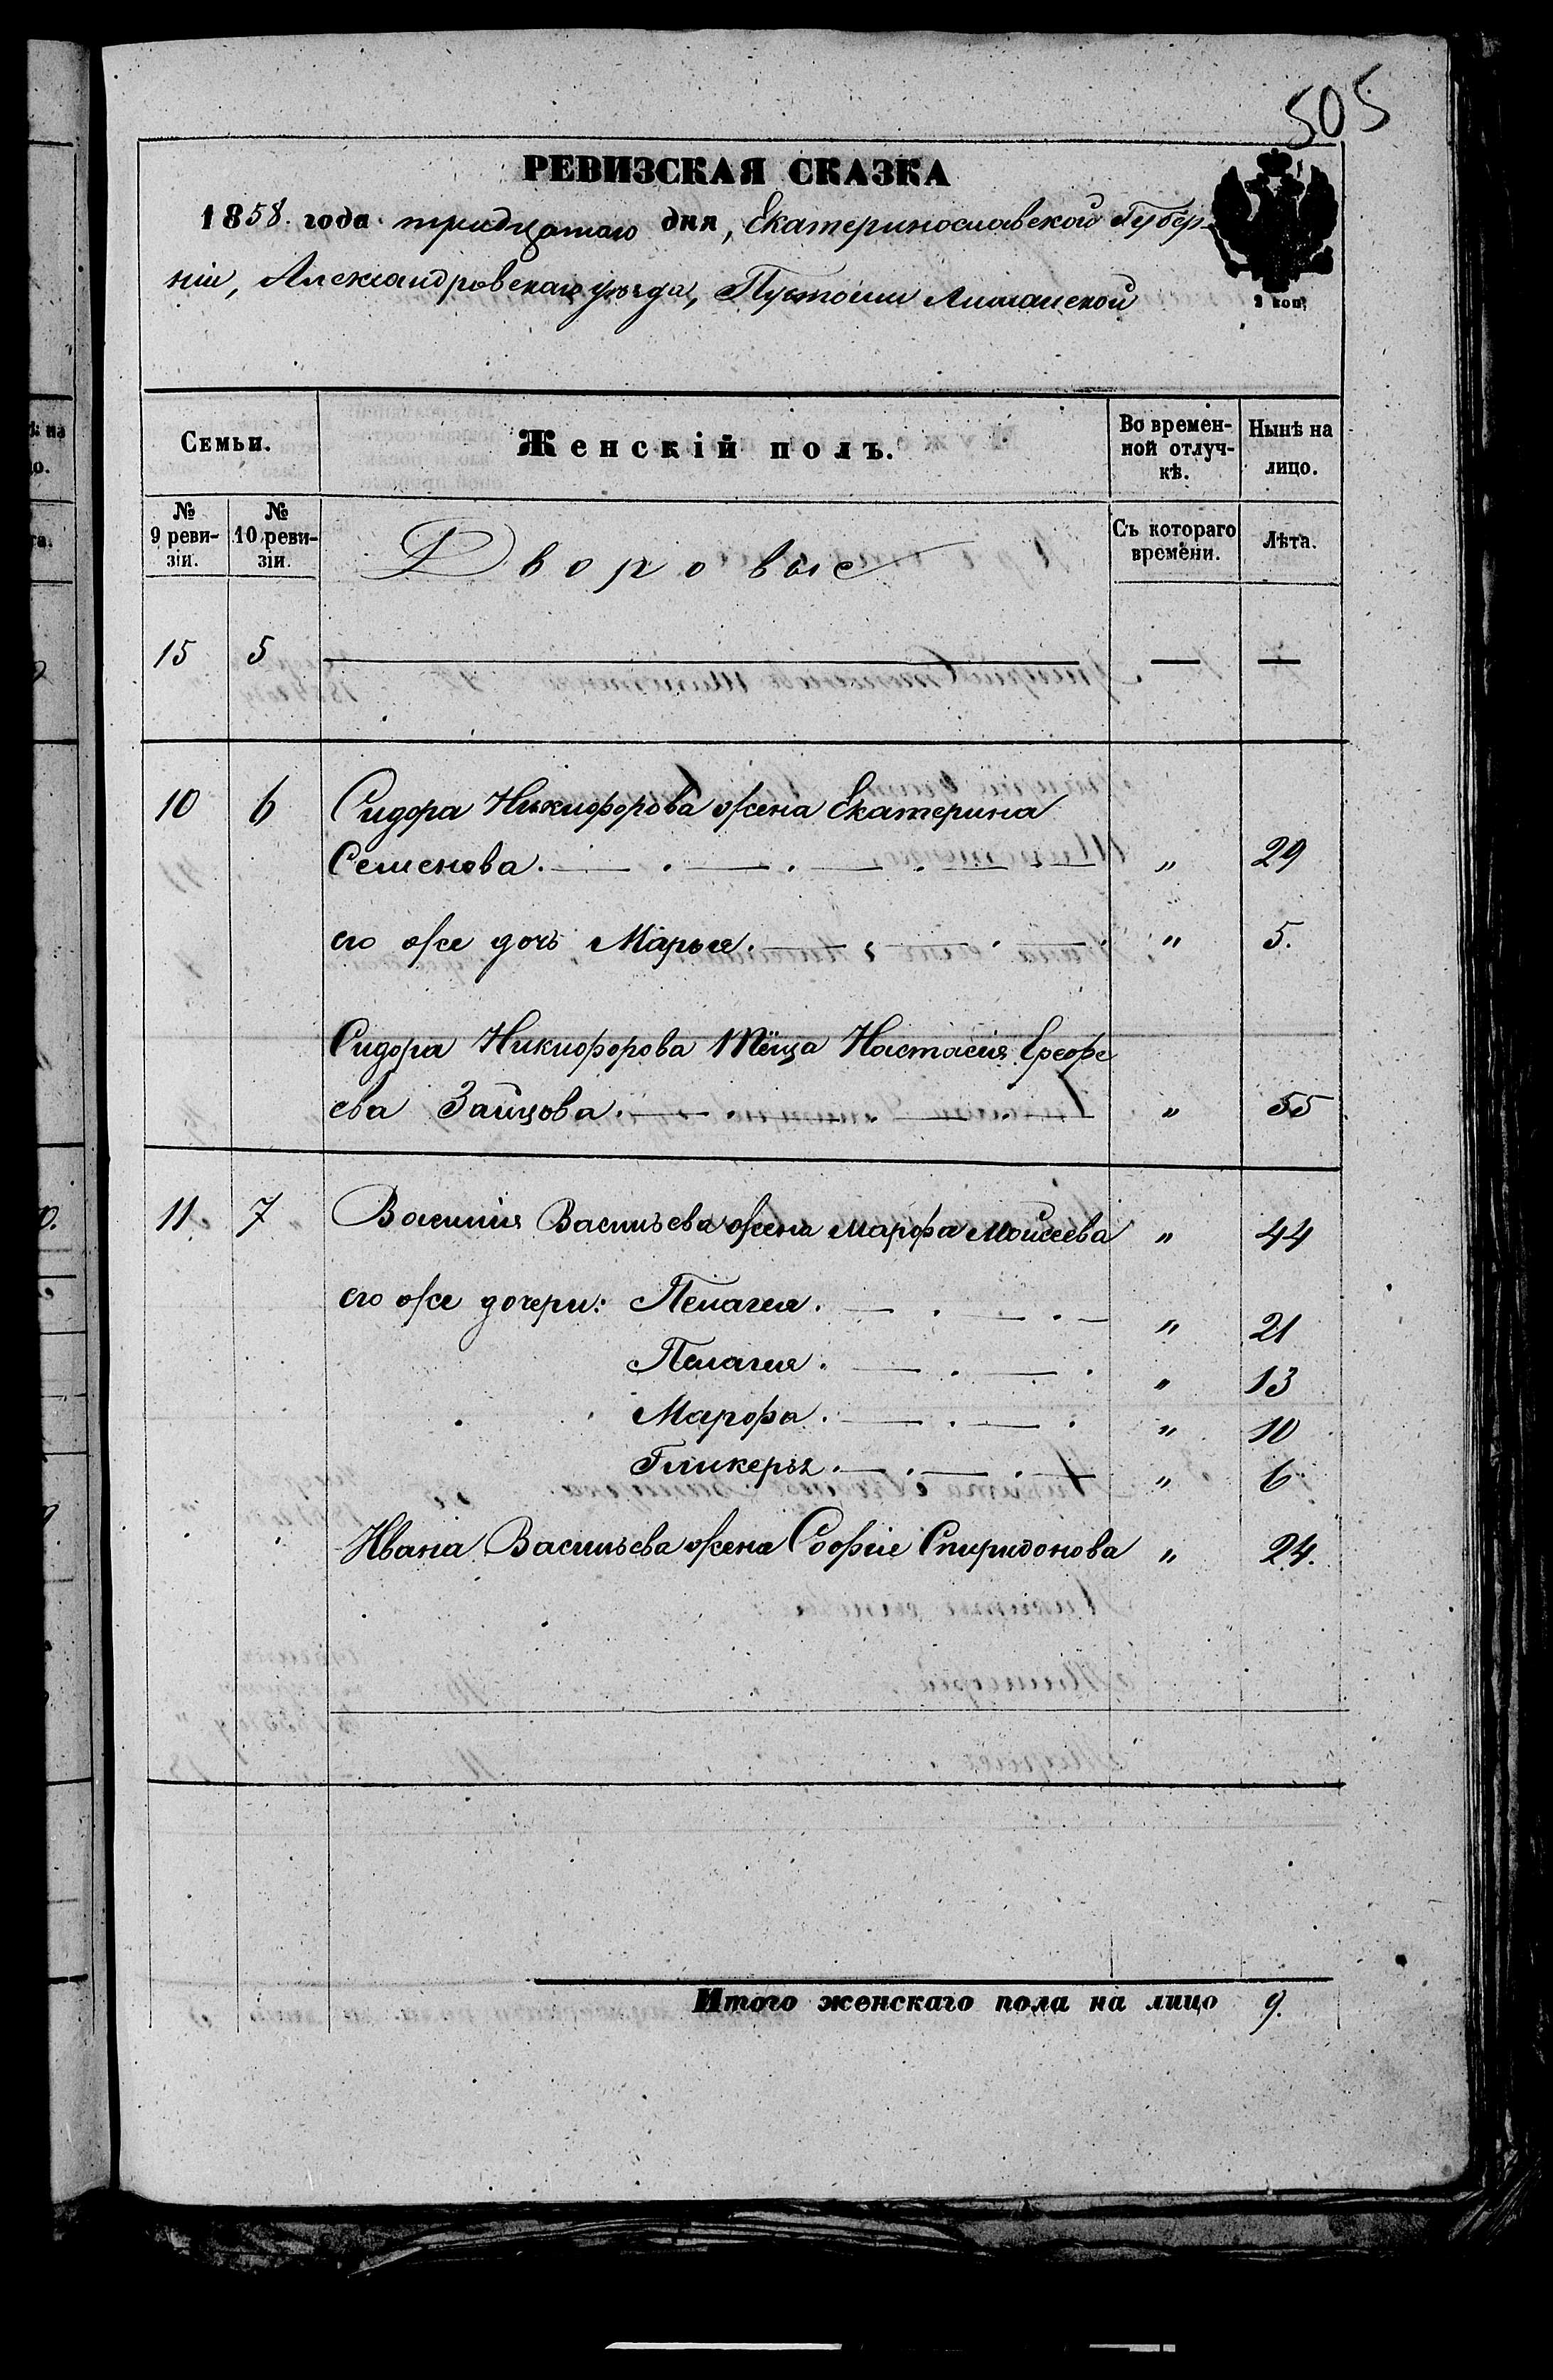 505
РЕВИЗСКАЯ СКАЗКА
1858. года тридцатаго дня, Екатеринославской Губер-
ніи, Александровскаго уезда, Пустоши Лиманской
2 коп.
Семьи.
Женскій полъ.
Во времен-
ной отлуч-
кѣ.
Нынѣ на
лицо.
№
9 реви-
зіи.
№
10 реви-
зіи.
Дворовые
Съ котораго
времени.
Лѣта.
15 5 — — —
10 6 Сидора Никифорова жена Екатерина
Семенова. „ 29
его же дочь Марья. „ 5.
Сидора Никифорова Тёща Настасія Ерофе
ева Зайцова. „ 55
11. 7 Василія Васильева жена Марфа Моисеева „ 44
его же дочери: Пелагея. „ 21
Пелагея. „ 13
Марфа. „ 10
Гликерья. „ 6
Ивана Васильева жена Софіе Спиридонова „ 24.
Итого женскаго пола на лицо 9.